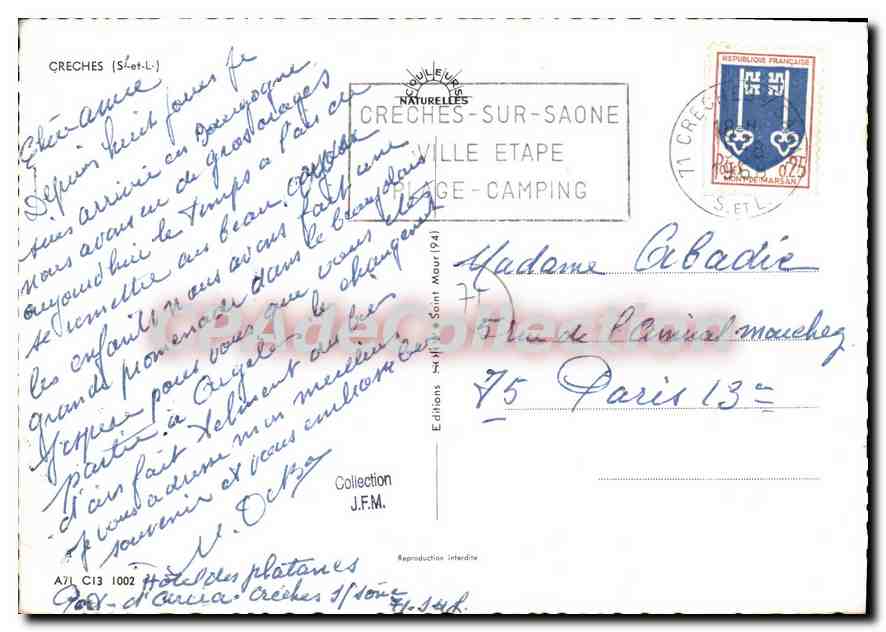 CRECHES (S.-et-L.)
Chère Annie
Depuis huit jours je
suis arrivée en Bourgogne
nous avons eu de gros orages
aujourd'hui le temps a l'air de
se remettre au beau.
les enfants nous avons fait une
grande promenade dans le beaujolais
J'espère pour vous que vous êtes
partie à Argelès le changement
d'air fait tellement du bien
Je vous adresse mon meilleur
souvenir et vous embrasse
Hôtel des platanes
Port d'arciat Crèches s/ Saône
71. S et L.
A71 C13 1002
COULEURS
NATURELLES
CRECHES-SUR-SAONE
VILLE ETAPE
PLAGE-CAMPING
71 CRECHES
18 H
8
1968
S. ET L.
REPUBLIQUE FRANÇAISE
POSTES 0,25
MONT-DE-MARSAN
Madame Abadie
75
5 rue de l'Amiral Mouchez
75 Paris 13e
Editions SOFER - Saint Maur (94)
Collection
J.F.M.
Reproduction interdite
CPAdeCollection